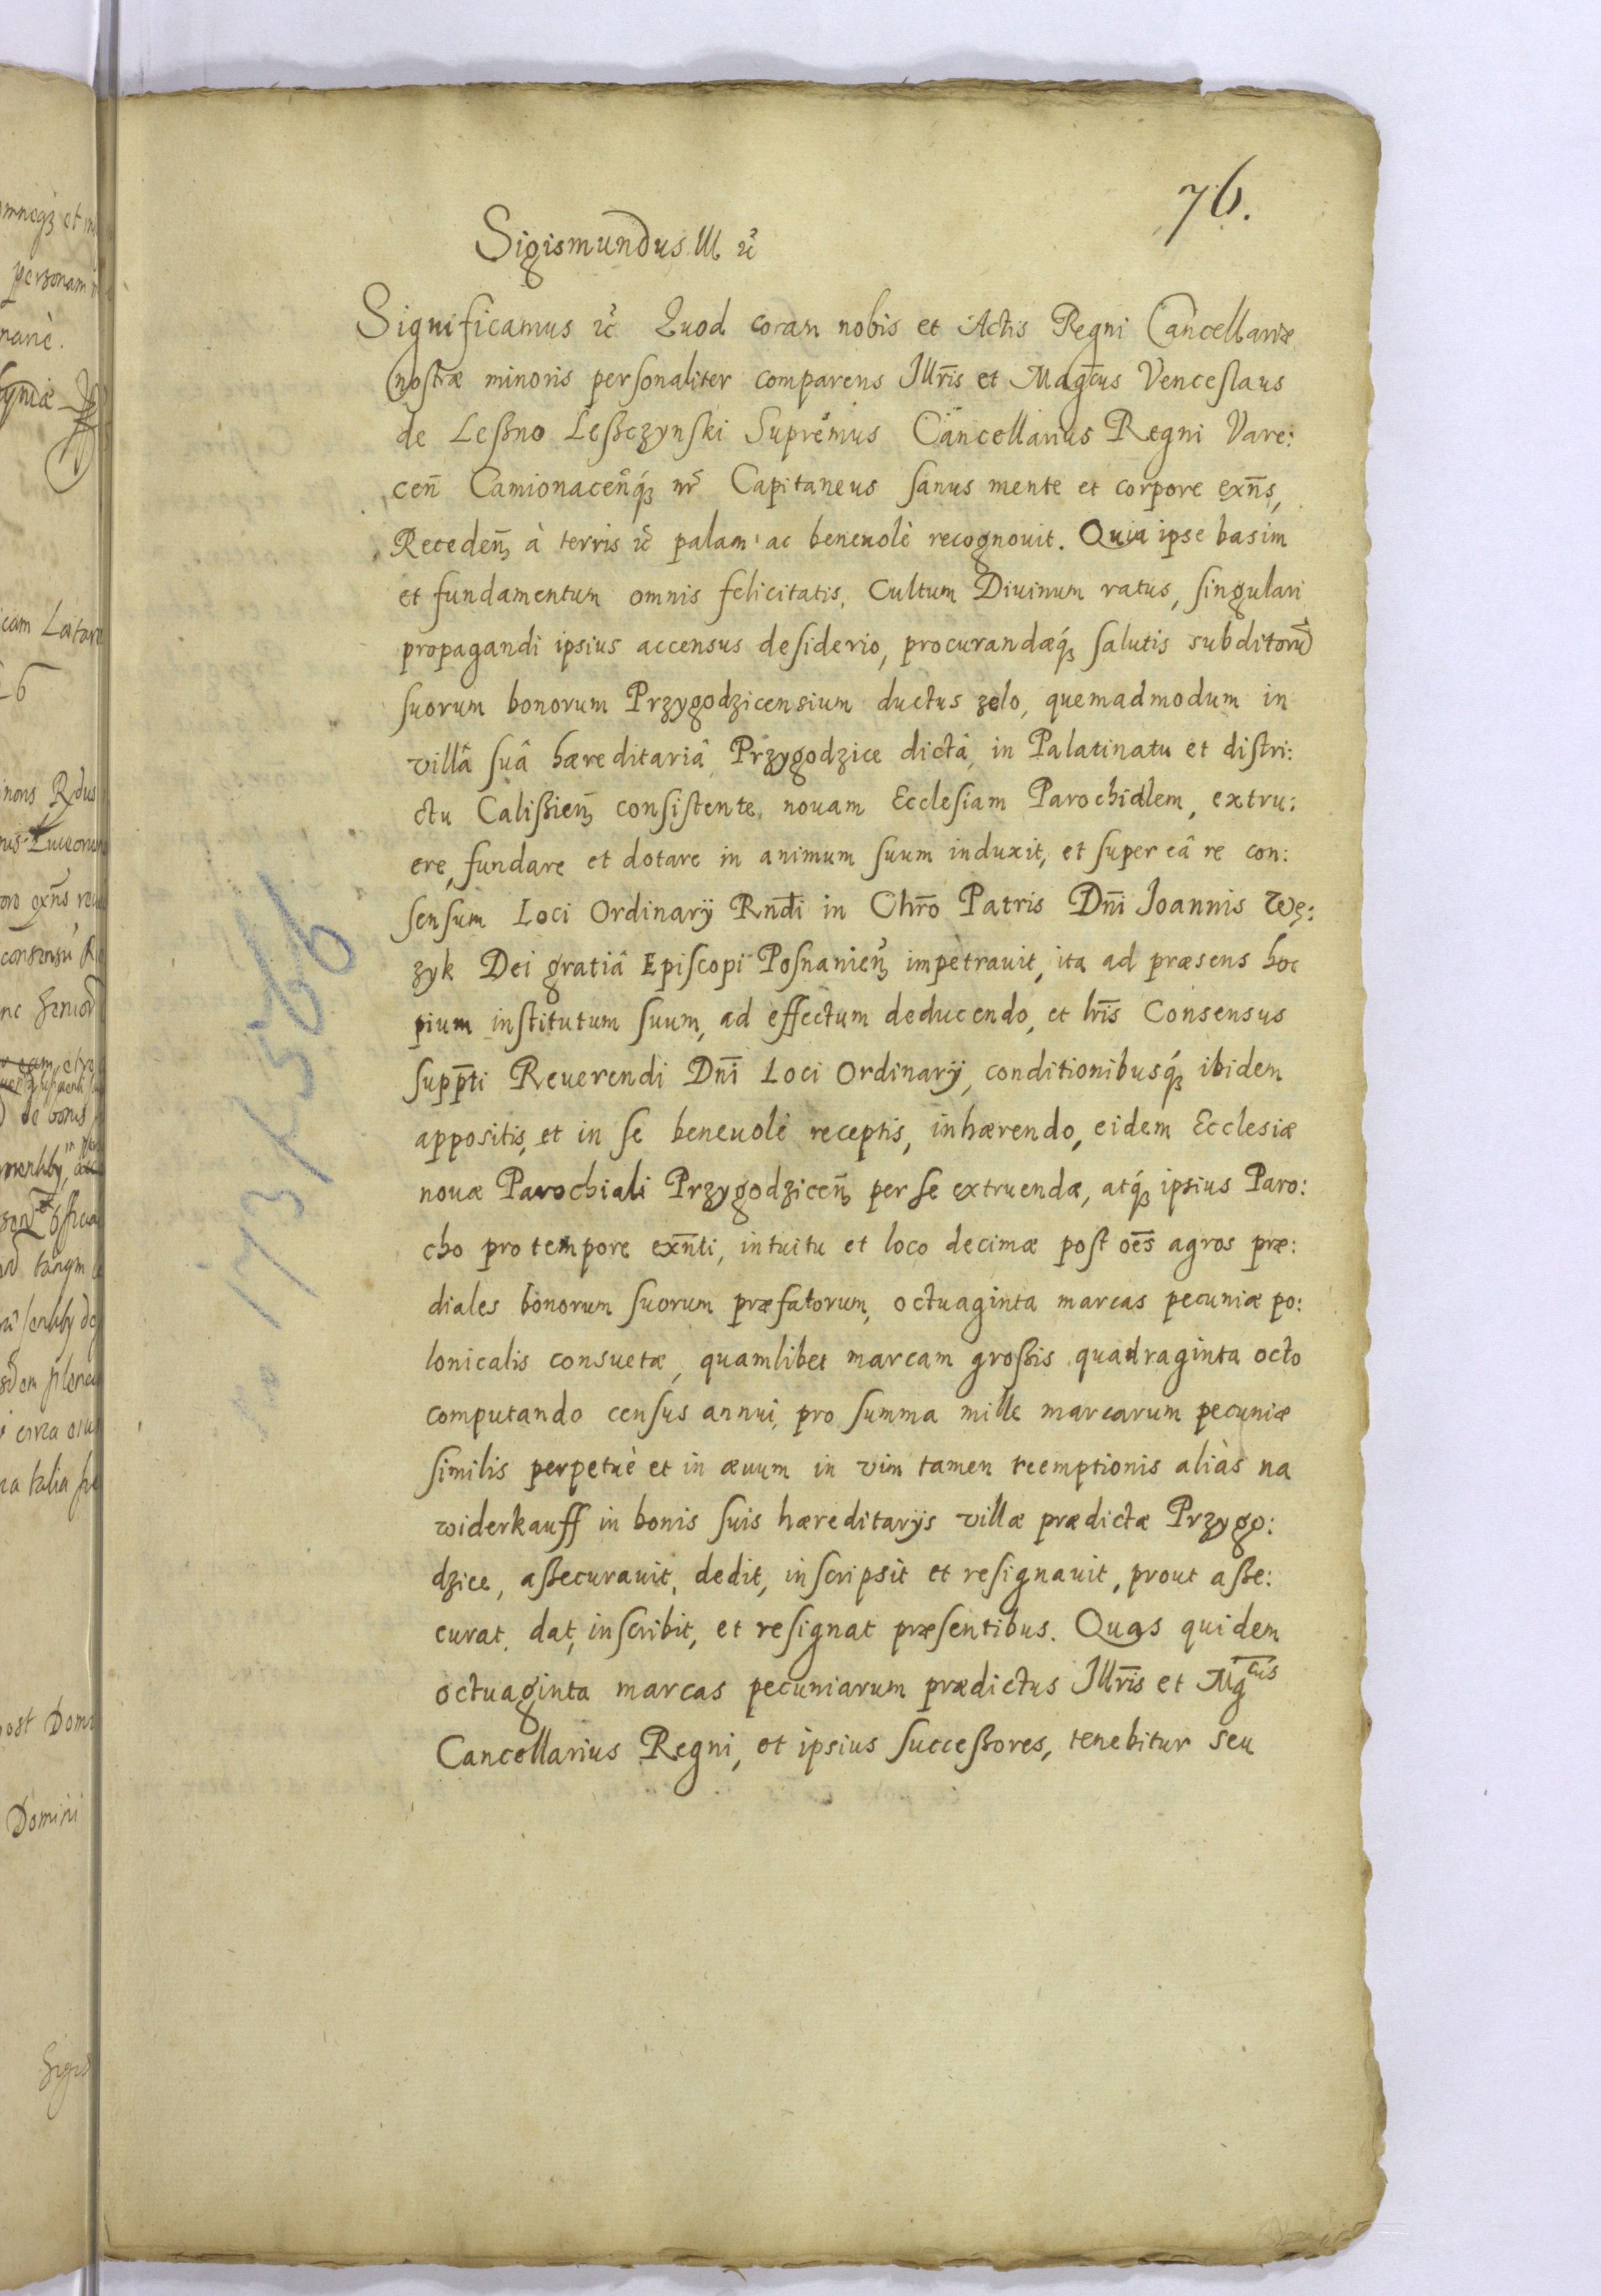 76.
Sigismundus III ꝛc̃
Significamus ꝛc̃ Quod coram nobis et Actis Regni Cancellariæ
nostræ minoris personaliter comparens Illr̃is et Mag̃cus Venceslaus
de Leßno Leßczynski Supremus Cancellarius Regni Vare:
cen̄ Camionacen̄q́ꝫ nr̃ Capitaneus sanus mente et corpore exn̄s,
Receden̄ à terris ꝛc̃ palam ac beneuolè recognouit. Quia ipse basim
et fundamentum omnis felicitatis, Cultum Diuinum ratus, singulari
propagandi ipsius accensus desiderio, procurandæq́ꝫ salutis subditorũ
suorum bonorum Przygodzicensium ductus zelo, quemadmodum in
villâ suâ hæreditariâ Przygodzice dictâ, in Palatinatu et distri:
ctu Calißien̄ consistente, nouam Ecclesiam Parochialem, extru:
ere, fundare et dotare in animum suum induxit, et super eâ re con:
sensum Loci Ordinarij Rnd̄i in Chr̄o Patris Dn̄i Joannis Wę:
zyk Dei gratiâ Episcopi Posnanien̄ impetrauit, ita ad præsens hoc
pium institutum suum, ad effectum deducendo, et lr̄is Consensus
supp̄ti Reuerendi Dn̄i Loci Ordinarij, conditionibusq́ꝫ ibidem
appositis, et in se beneuolè receptis, inhærendo, eidem Ecclesiæ
nouæ Parochiali Przygodzicen̄ per se extruendæ, atq́ꝫ ipsius Paro:
cho pro tempore exn̄ti, intuitu et loco decimæ post oēs agros præ:
diales bonorum suorum præfatorum, octuaginta marcas pecuniæ po:
lonicalis consuetæ, quamlibet marcam großis quadraginta octo
computando census annui, pro summa mille marcarum pecuniæ
similis perpetuè et in æuum in vim tamen reemptionis aliàs na
widerkauff in bonis suis hæreditarijs villæ prædictæ Przygo:
dzice, aßecurauit, dedit, inscripsit et resignauit, prout aße:
curat, dat, inscribit, et resignat præsentibus. Quas quidem
octuaginta marcas pecuniarum prædictus Illr̃is et Mg̃cus
Cancellarius Regni, et ipsius succeßores, tenebitur seu
173/566